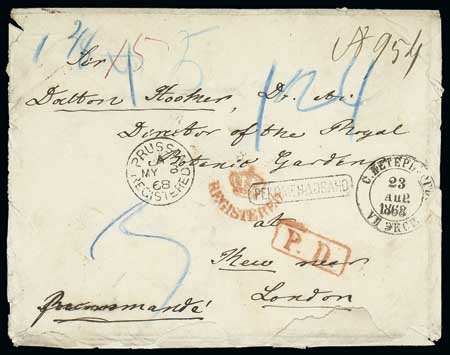 Sir
15
A 954
5
124
Dalton Hooker, Dr. etc.
Director of the Royal
Botanic Gardens
at
Kew near
London
Recommandé
PRUSSIA
A
MY
68
REGISTERED
REGISTERED
РЕКОМЕНДОВАНО
С. ПЕТЕРБУРГ
23
АПР.
1868
P.D.